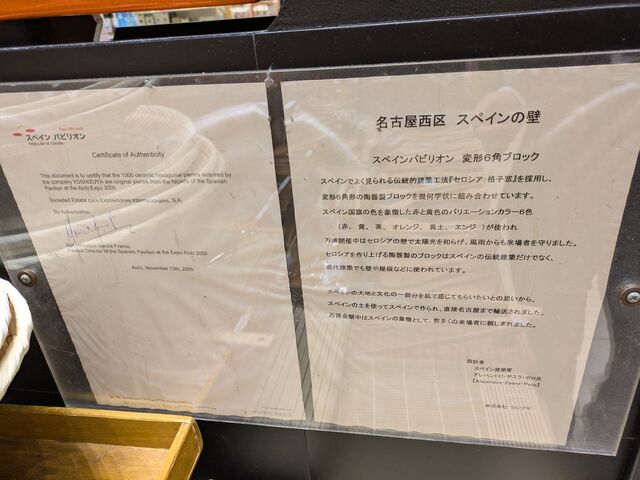 スペイン パビリオン
PABELLON DE ESPAÑA
Certificate of Authenticity
This document is to certify that the 1000 ceramic hexagonal pieces acquired by
the company YOSHIZUYA are original pieces from the facade of the Spanish
Pavilion at the Aichi Expo 2005
Sociedad Estatal para Exposiciones Internacionales, S.A.
By Authorization
García Franco
Director of the Spanish Pavilion at the Expo Aichi 2005
Aichi, November 13th, 2005
名古屋西区 スペインの壁
スペインパビリオン 変形6角ブロック
スペインでよく見られる伝統的建築工法『セロシア:格子窓』を採用し、
変形6角形の陶器製ブロックを幾何学状に組み合わせています。
スペイン国旗の色を象徴した赤と黄色のバリエーションカラー6色
(赤、黄、茶、オレンジ、黄土、エンジ)が使われ
万博開催中はセロシアの壁で太陽光を和らげ、風雨からも来場者を守りました。
セロシアを作り上げる陶器製のブロックはスペインの伝統建築だけでなく、
現代建築でも壁や屋根などに使われています。
スペインの大地と文化の一部分を肌で感じてもらいたいとの思いから、
スペインの土を使ってスペインで作られ、直接名古屋まで輸送されました。
万博会期中はスペインの象徴として、数多くの来場者に親しまれました。
設計者
スペイン建築家
アレハンドロ・サエラ・ポロ氏
【Alejandro-Zaera-Polo】
株式会社 ヨシヅヤ